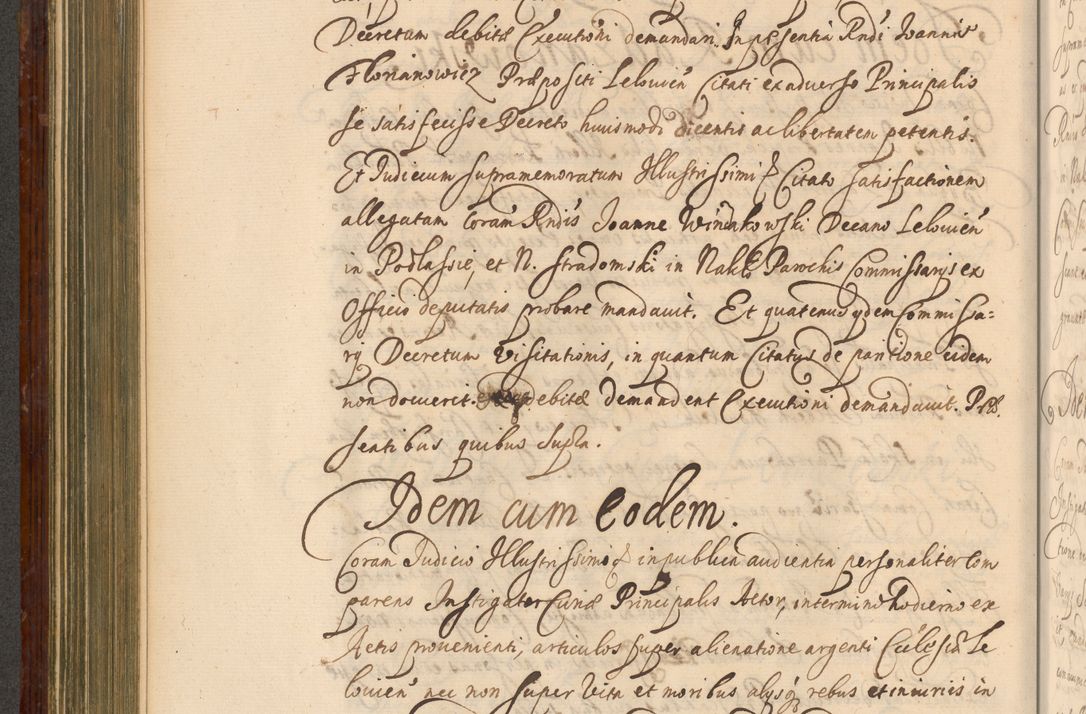 Decretum debitæ Executioni demandari. In pńsentia Rndi Joannis
Florianowicz Præpositi Lelovień Citati ex adverso Principalis
se satisfecisse Decreto huiusmodi dicentis ac libertatem petentis.
Et Judicium supramemoratum Illustrissimi & Citato satisfactionem
allegatam Coram Rndis Joanne Winenkowski Decano Lelovień
in Podlassie, et N. Stradomski in Nakło Parochis Commissarijs ex
Officio deputatis probare mandavit. Et quatenus ydem Commissa=
rij Decretum Visitationis, in quantum Citatus de paritione eidem
non docuerit. debitæ demandent Executioni demandavit. Præ
sentibus quibus supra.
Idem cum Eodem.
Coram Judicio Illustrissimi & in publica audientia personaliter com
parens Instigator Curiæ Principalis Actor, in termino hodierno ex
Actis provenienti, articulos super alienatione argenti Ecclesiæ Le
lovień nec non super Vita et moribus alysq3 rebus et iniuriis in